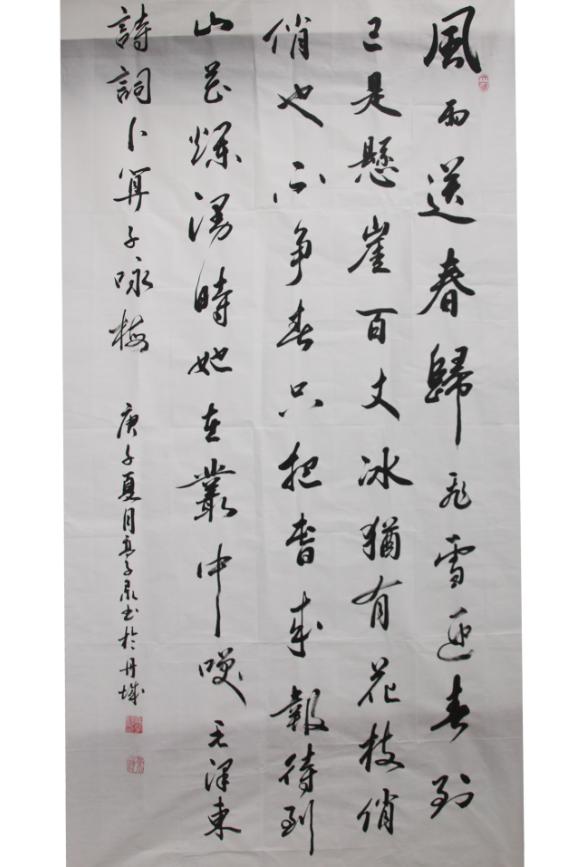 風雨送春歸飛雪迎春到
已是懸崖百丈冰猶有花枝俏
俏也不争春只把春来報待到
山花爛漫時她在叢中笑毛澤東
詩詞卜算子咏梅
庚子夏月書於丹城